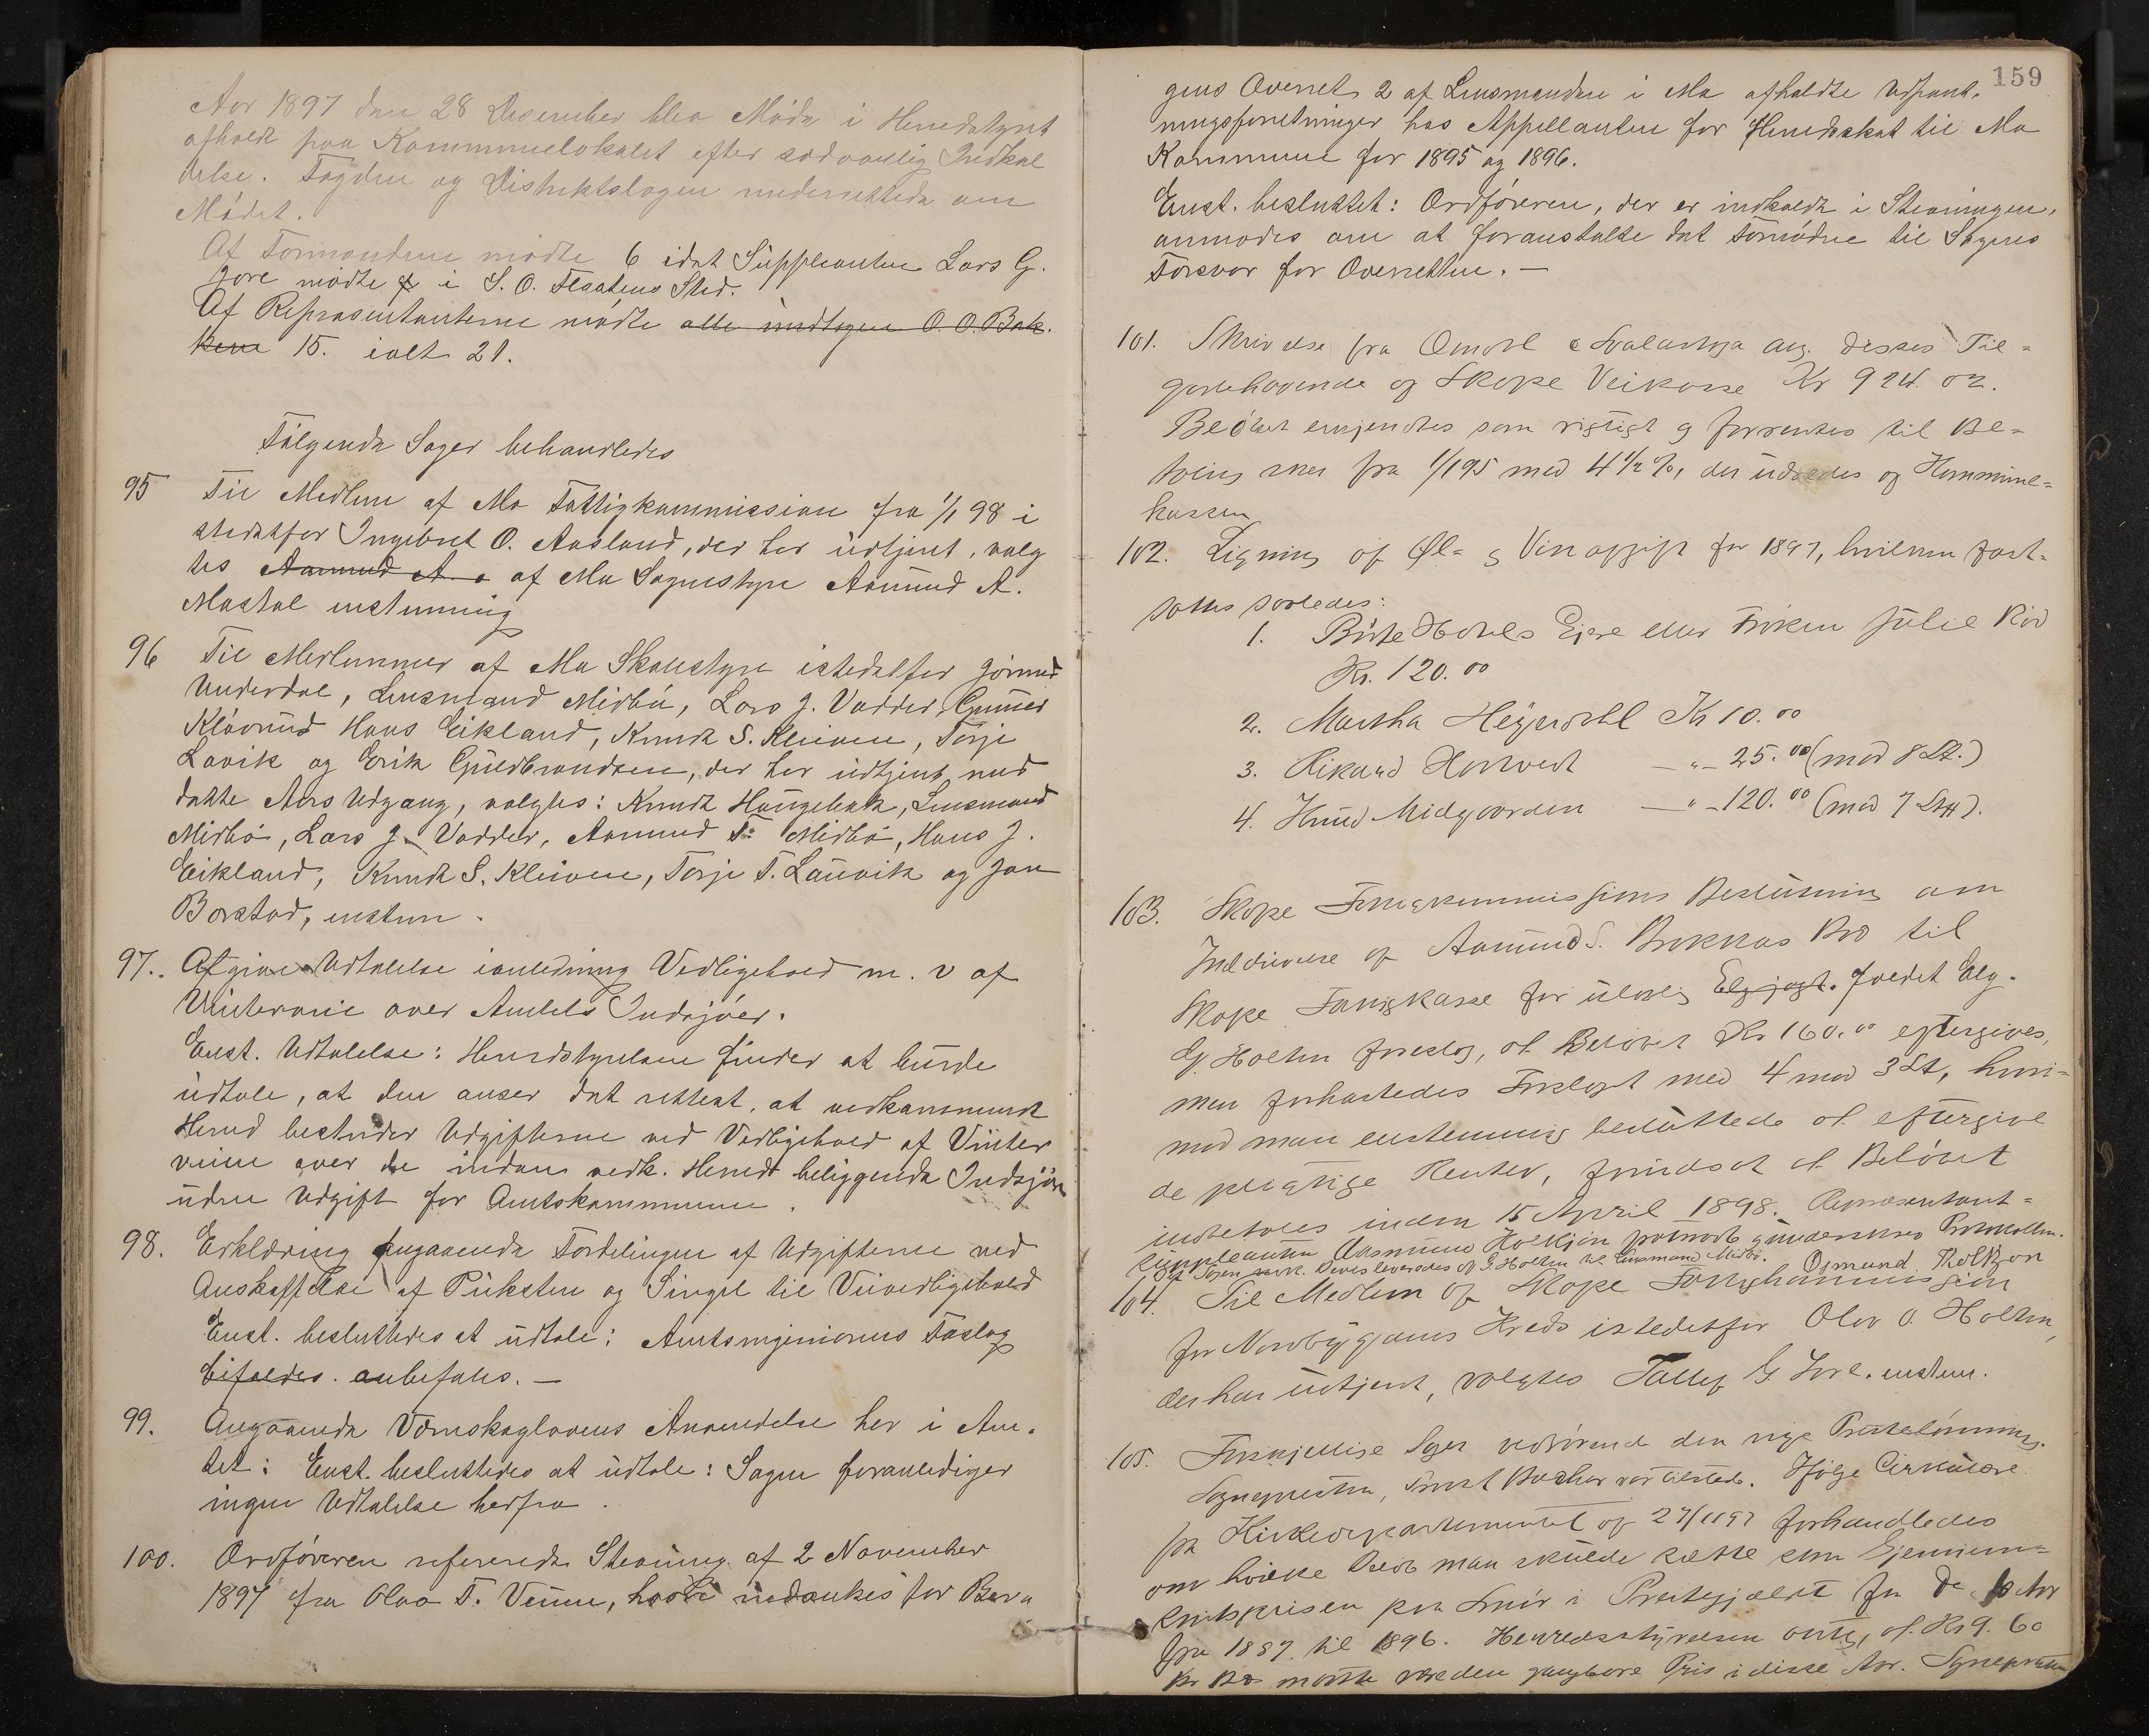 Aar 1897 den 28 December blev Møde i Herredstyret
afholdt paa Kommunelokalet efter sedvanlig Indkal
delse. Fogden og Distriktslægen underrettede om
Mødet.
Af Formændene mødte 6 idet Suppleanten Lars G.
mødte i S. O. Flaatens Sted.
Af Repræsentanterne mødte alle undtagen O. O. Bak.
ken 15. ialt 21.
Følgende Sager behandledes
95 Til Medlem af Mo Fattigkommission fra 1/1 98 i
stedetfor Ingebret O. Aasland, der har udtjent, valg
tes Aamund A. af Mo Sognestyre Aamund A.
Mostøl enstemmig
96 Til Medlemmer af Mo Skolestyre istedetfor Jørund
Underdal, Lensmand Midbø, Lars J. Vadder, Gunner
Kløvrud Hans Eikland, Knudt S. Kleiven, Torje
Lavik og Erik Guldbrandsen, der har udtjent med
dette Aars Udgang, valgtes: Knudt Haugebak, Lensmand
Midbø, Lars J. Vadder, Aamund T. Midbø, Hans J.
Eikland, Knudt S. Kleiven, Torje T. Lauvik og Jon
Borstad, enstem.
97. Afgive Udtalelse ianledning Vedligehold m. v af
Vinterveie over Amtets Indsjøer.
Enst. Udtalelse: Herredstyrelsen finder at burde
udtale, at den anser det rettest, at vedkommende
Herred bestrider Udgifterne ved Vedligehold af Vinter
veiene over de inden vedk. Herred beliggende Indsjøer
uden Udgift for Amtskommunen.
98. Erklæring angaaende Fordelingen af Udgifterne ved
Anskaffelse af Puksten og Singel til Veivedligehold
Enst. besluttedes at udtale: Amtsingeniørens Forslag
bifaldes. anbefales. —
99. Angaaende Værnskoglovens Anvendelse her i Am-
tet: Enst. besluttedes at udtale: Sagen foranlediger
ingen Udtalelse herfra.
100. Ordføreren refererede Stevning af 2 November
1897 fra Olav T. Veum, indankes for Ber
159
gens Overret 2 af Lensmanden i Mo afholdte Udpant-
ningsforretninger hos Appellanten for Herredsskat til Mo
Kommune for 1895 og 1896.
Enst. besluttet: Ordføreren, der er indkaldt i Stevningen,
anmodes om at foranstalte det fornødne til Sagens
Forsvar for Overretten. —
101. Skrivelse fra Omdal & Svalastoga ang. disses Til=
godehavende af Skafse Veikasse Kr 924.02.
Beløbet erkjendtes som rigtigt og forrentes til Be=
taling sker fra 1/1 95 med 4 1/2 %, der udredes af Kommune=
kassen
102. Ligning af Øl= og Vinafgift for 1897, hvilken fast=
sattes saaledes:
1. Hotels Ejere eller Frøken Julie
Kr. 120.00
2. Martha Heggedahl Kr 10.00
3. Rikard Hortvedt —„— 25.00 (mod 8 St.)
4. Knud Midgaarden —„— 120.00 (mod 7 Stt).
103. Skafse Fattigkommissions Beslutning om
Inddrivelse af Aamund S. Bo til
Skafse Fattigkasse for ulovlig Elgjagt. fældet Elg.
G. Holten foreslog, at Beløbet Kr 160.00 eftergives,
men forkastedes Forslaget med 4 mod 3 St, hvori=
mod man enstemmig besluttede at eftergive
de pligtige Renter, forudsat at Beløbet
indbetales inden 15 April 1898. Repræsentant=
suppleanten Aasmund underskrev Protokollen.
G. Holten til Lensmand Midbø. Osmund
104. Til Medlem af Skafse Fattigkommission
for Nordbygdens Kreds istedetfor Olav O. Holten,
der har udtjent, valgtes Tallef G. enstem.
105. Forskjellige Sager vedrørende den nye Prestelønning.
Sognepresten, var tilstede. Ifølge Cirkulære
fra Kirkedepartementet af 27/11 97 forhandledes
om hvilke Beløb man skulde sætte som Gjennem=
snitsprisen paa Smør i Prestegjældet for de 10 Aar
fra 1887 til 1896. Herredsstyrelsen antog, at Kr 9.60
maatte være den gangbare Pris i disse Aar. Sognepresten